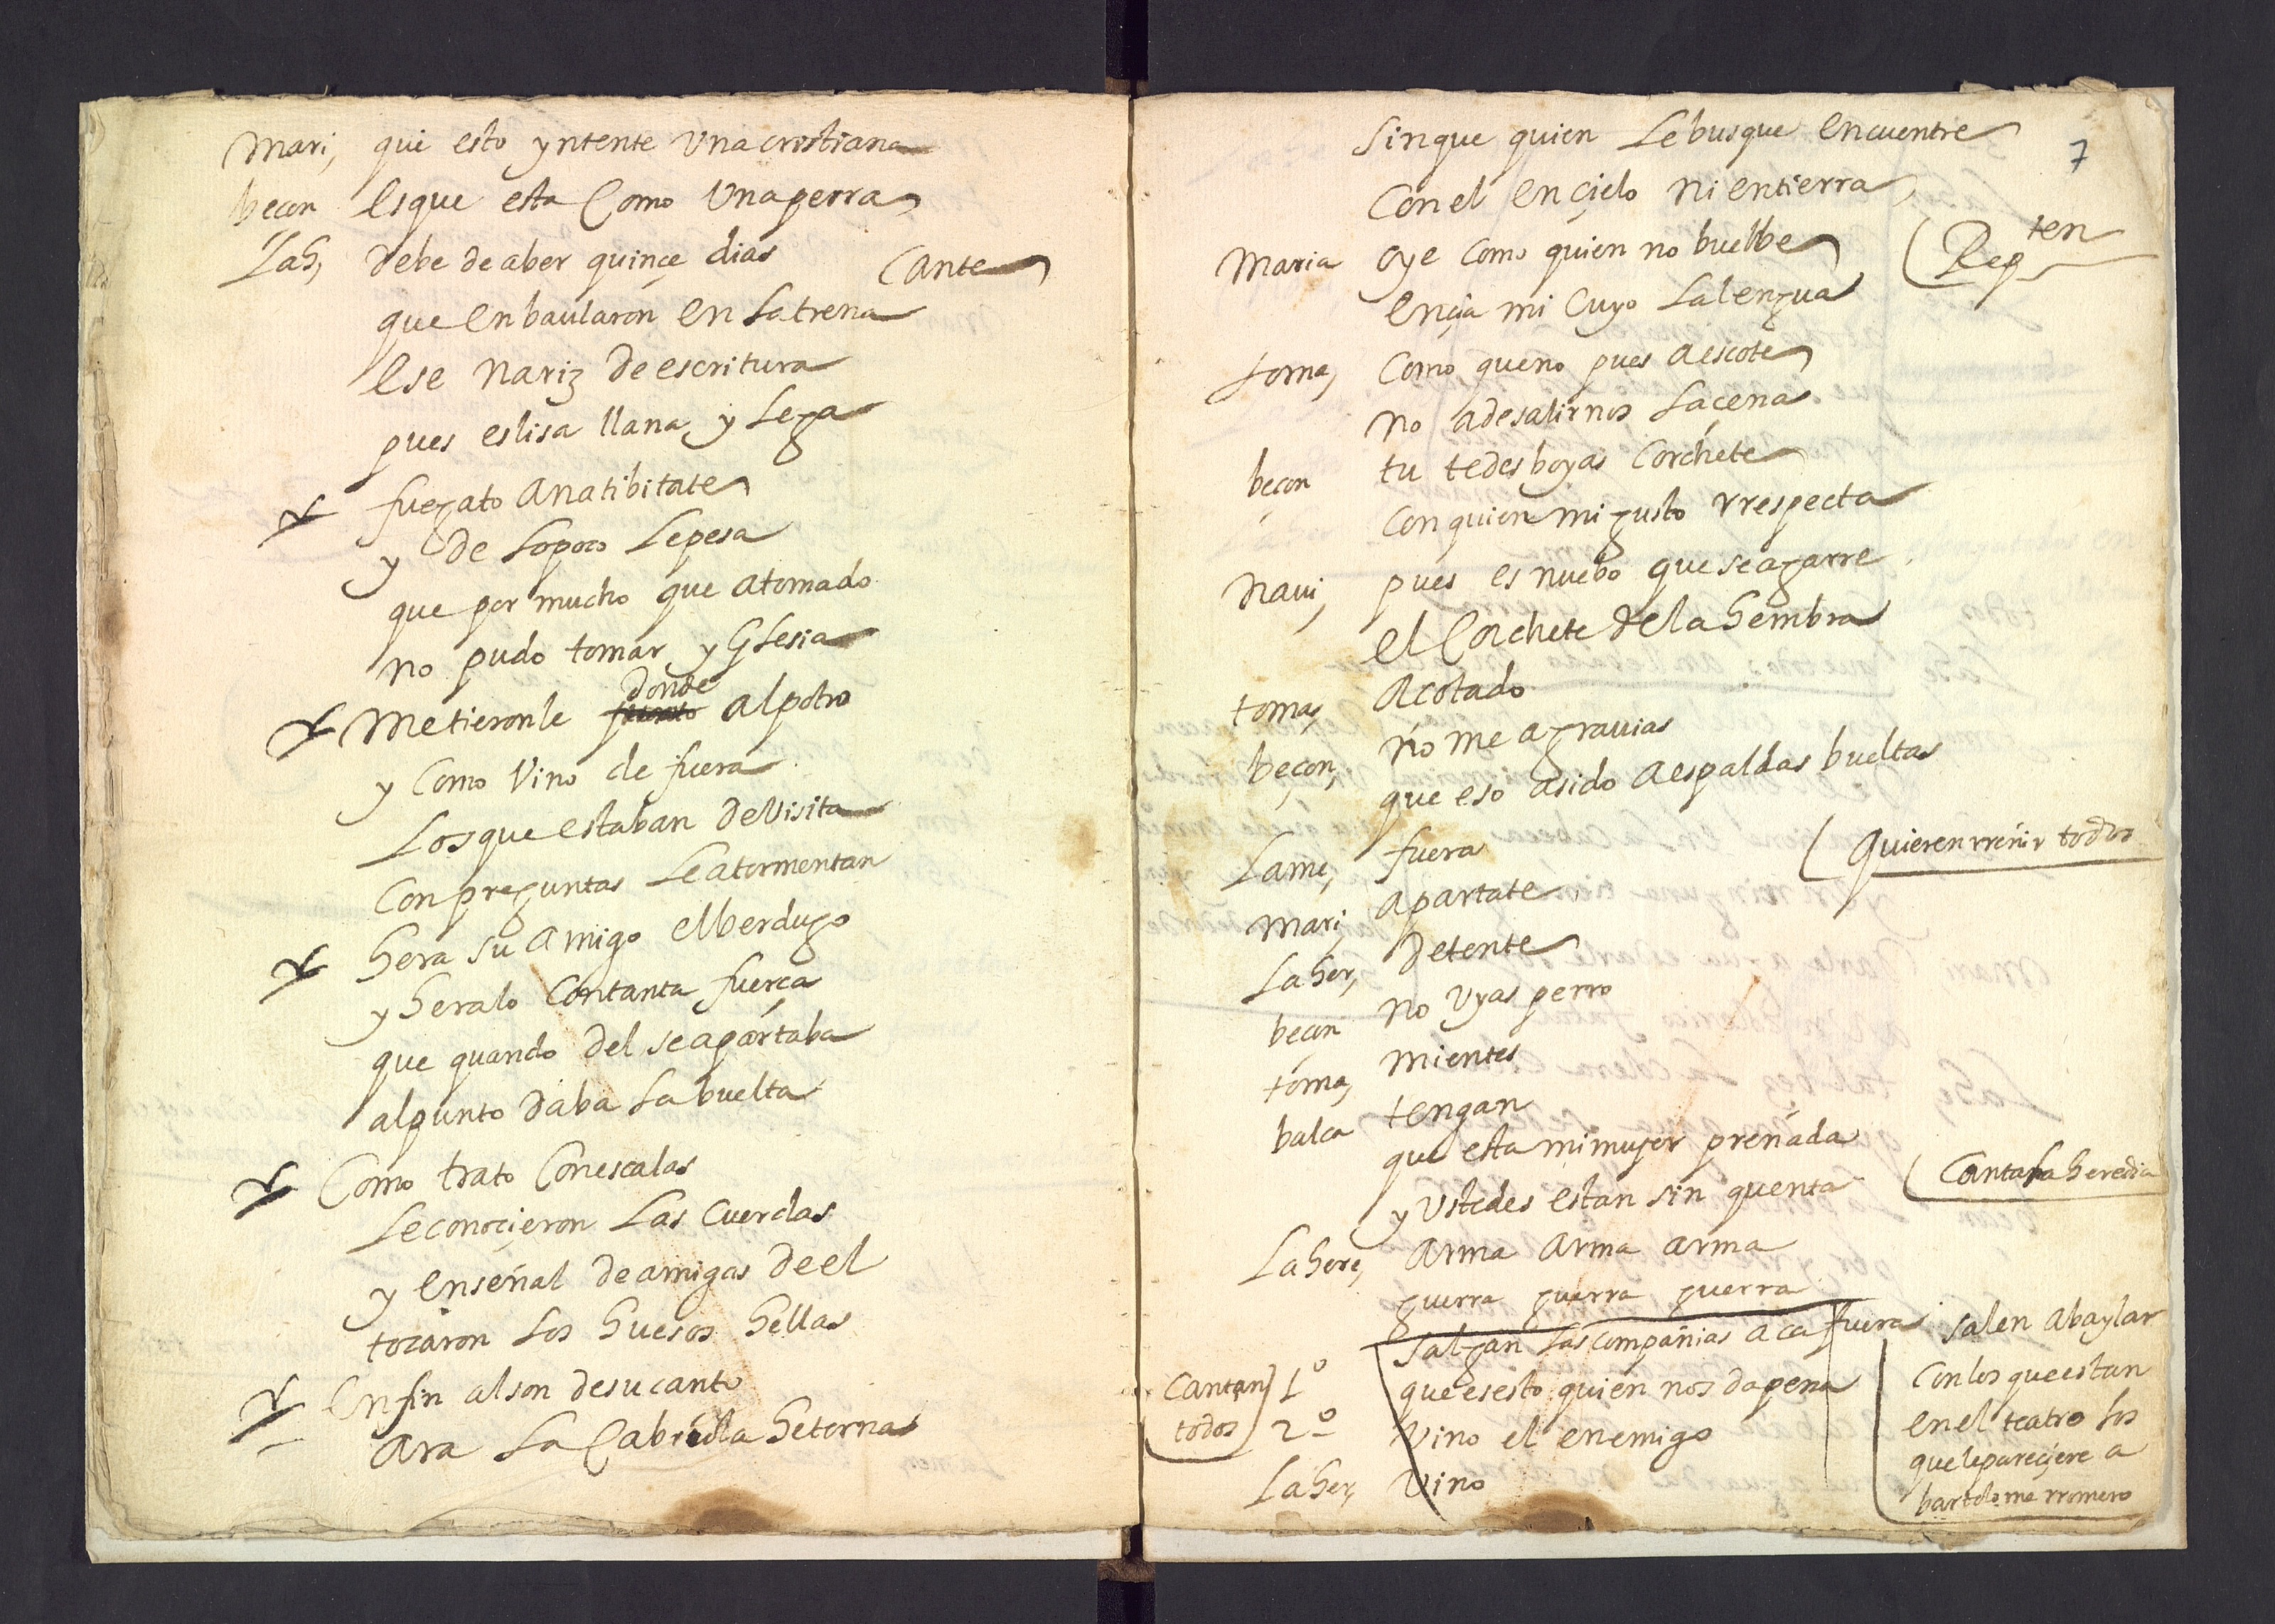 Mari, que esto yntente Una cristiana
beçon Es que esta Como Una perra
Lah, debe de aber quinçe dias (Cante
que Enbaularon En La trena
Ese Nariz de escritura
pues es lisa llana y Lega
fue gato A natibitate
y de Lo poco Le pesa
que por mucho que a tomado
no pudo tomar yGLesia
Metieronle donde al potro
y Como Vino de fuera
Los que estaban de Visita
Con preguntas Le atormentan
hera su Amigo el berdugo
y heralo Con tanta fuerça
que quando del se apartaba
al punto daba La buelta
Como trato Con escalas
Le conoçieron Las Cuerdas
y En señal de amigas de el
tocaron Los huesos hellas
En fin al son de su canto
Ara La Cabriella he tornas
7
Sin que quien Le busque Encuentre
Con el En çielo Ni En tierra
(Rep ten
Maria oye Como quien no buelbe
Ençia mi Cuyo La lengua
toma, Como que no pues A escote
no a de salirnos La çena
beçon tu te desboyas Corchete
Con quien mi gusto rrespecta
Navi, pues es nuebo que se agarre
el Corchete de la hembra
toma, Acotado
beçon, no me agrauias
que eso a sido A espaldas bueltas
Lame, fuera (Quieren rreñir todos
Mari, Apartate
La her, detente
beçon no Uyas perro
toma, mientes
balca tengan
que esta mi muger preñada
y Ustedes estan sin quenta (Canta La heredia
La here, Arma Arma arma
guerra guerra guerra
salgan Las compañias a ca fuera
Cantan todos
1º que es esto quien nos da pena
2º Vino el enemigo
La her, Vino
salen A baylar
Con los que estan
en el teatro Los
que le pareçiere a
bartolome rromero